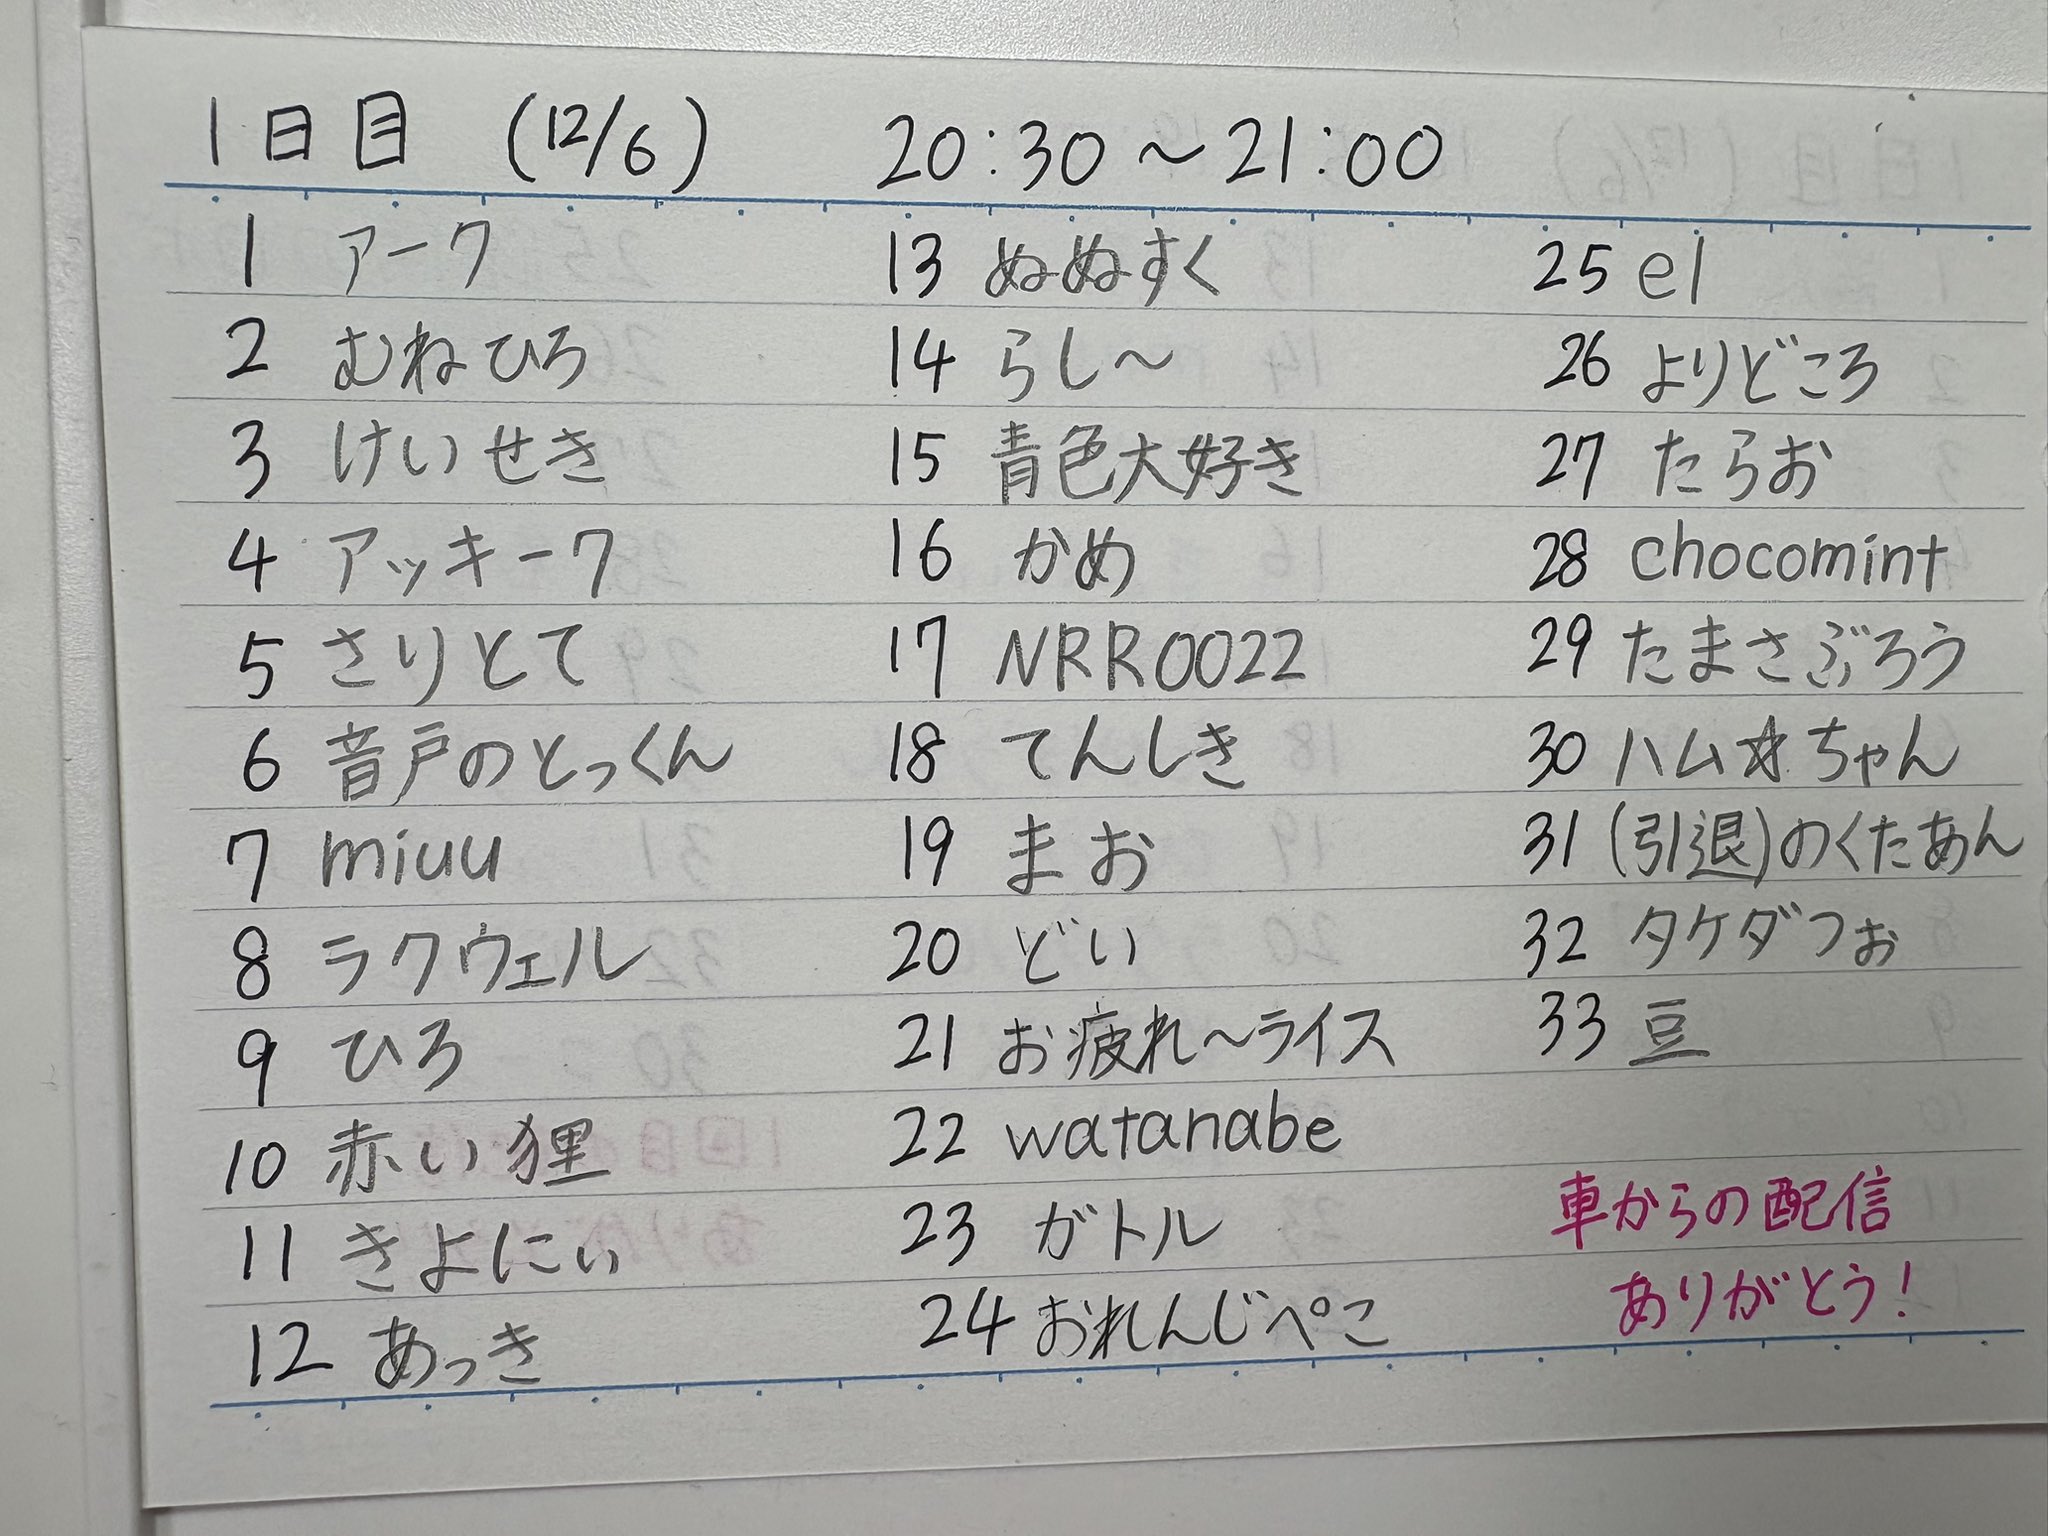 1日目 (12/6) 20:30〜21:00
1 アーク
2 むねひろ
3 けいせき
4 アッキーク
5 さりとて
6 音戸のとっくん
7 miuu
8 ラクウェル
9 ひろ
10 赤い狸
11 きよにぃ
12 あっき
13 ぬぬすく
14 らし〜
15 青色大好き
16 かめ
17 NRR0022
18 てんしき
19 まお
20 どい
21 お疲れ〜ライス
22 watanabe
23 ガトル
24 おれんじぺこ
25 el
26 よりどころ
27 たらお
28 chocomint
29 たまさぶろう
30 ハム☆ちゃん
31 (引退)のくたあん
32 タケダつぉ
33 豆
車からの配信
ありがとう!